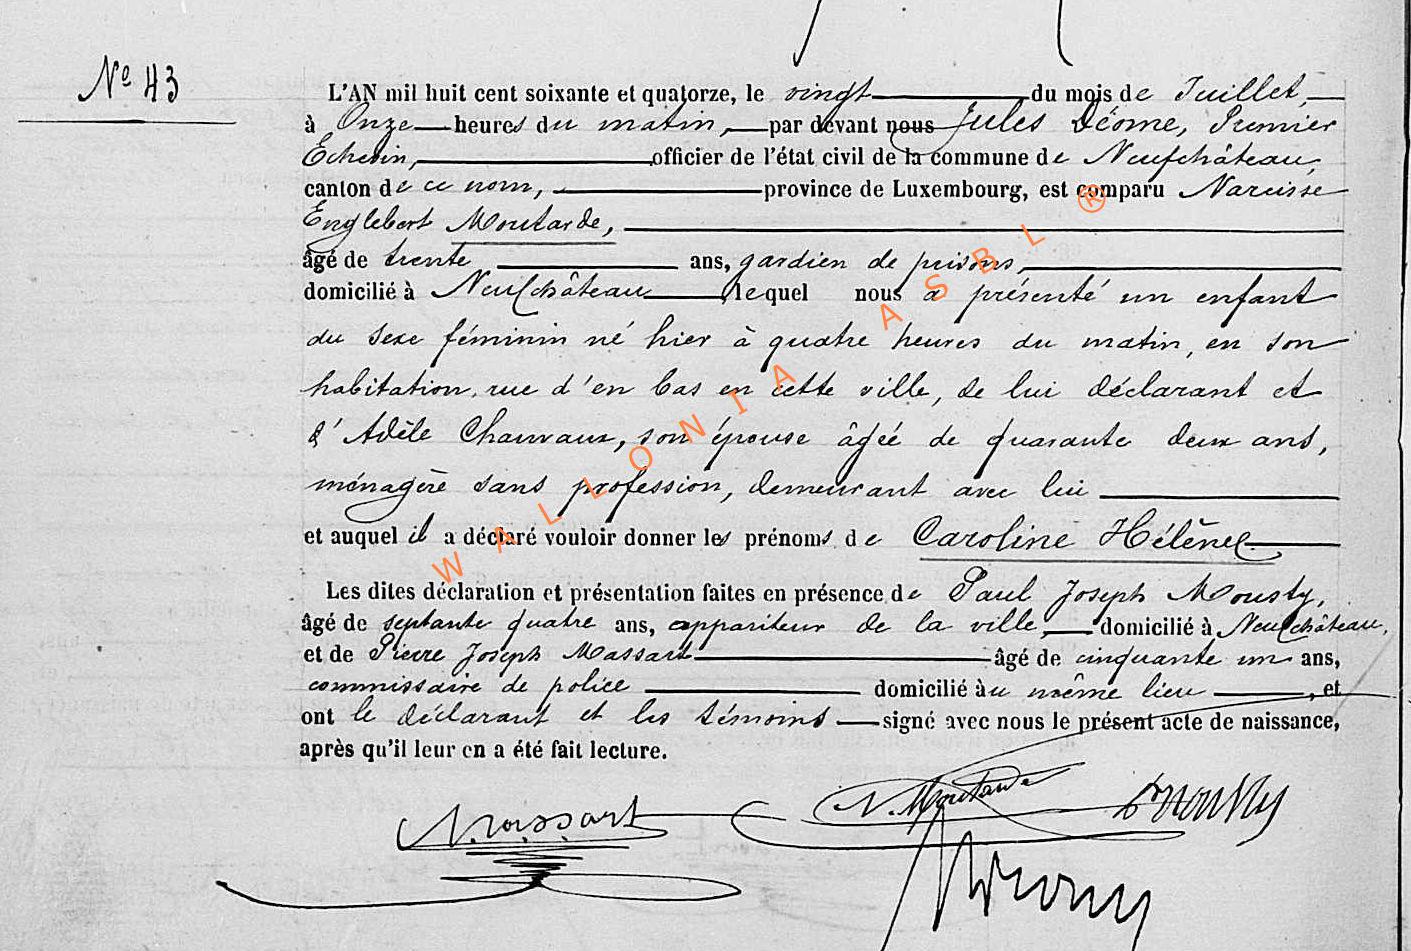 Nº 43
L'AN mil huit cent soixante et quatorze, le vingt du mois de Juillet,
à Onze heures du matin, par devant nous Jules Déome, Premier
Echevin, officier de l'état civil de la commune de Neufchâteau,
canton de ce nom, province de Luxembourg, est comparu Narcisse
Englebert Moutarde,
âgé de trente ans, gardien de prisons,
domicilié à Neufchâteau, lequel nous a présenté un enfant
du sexe féminin né hier à quatre heures du matin, en son
habitation, rue d'en bas en cette ville, de lui déclarant et
d'Adèle Chauvaux, son épouse âgée de quarante deux ans,
ménagère sans profession, demeurant avec lui
et auquel il a déclaré vouloir donner les prénoms de Caroline Hélène
Les dites déclaration et présentation faites en présence de Paul Joseph Mousty,
âgé de septante quatre ans, appariteur de la ville, domicilié à Neufchâteau,
et de Pierre Joseph Massart âgé de cinquante un ans,
commissaire de police domicilié au même lieu, et
ont le déclarant et les témoins signé avec nous le présent acte de naissance,
après qu'il leur en a été fait lecture.
N. Moutarde
Massart
WALLONIA ASBL ®